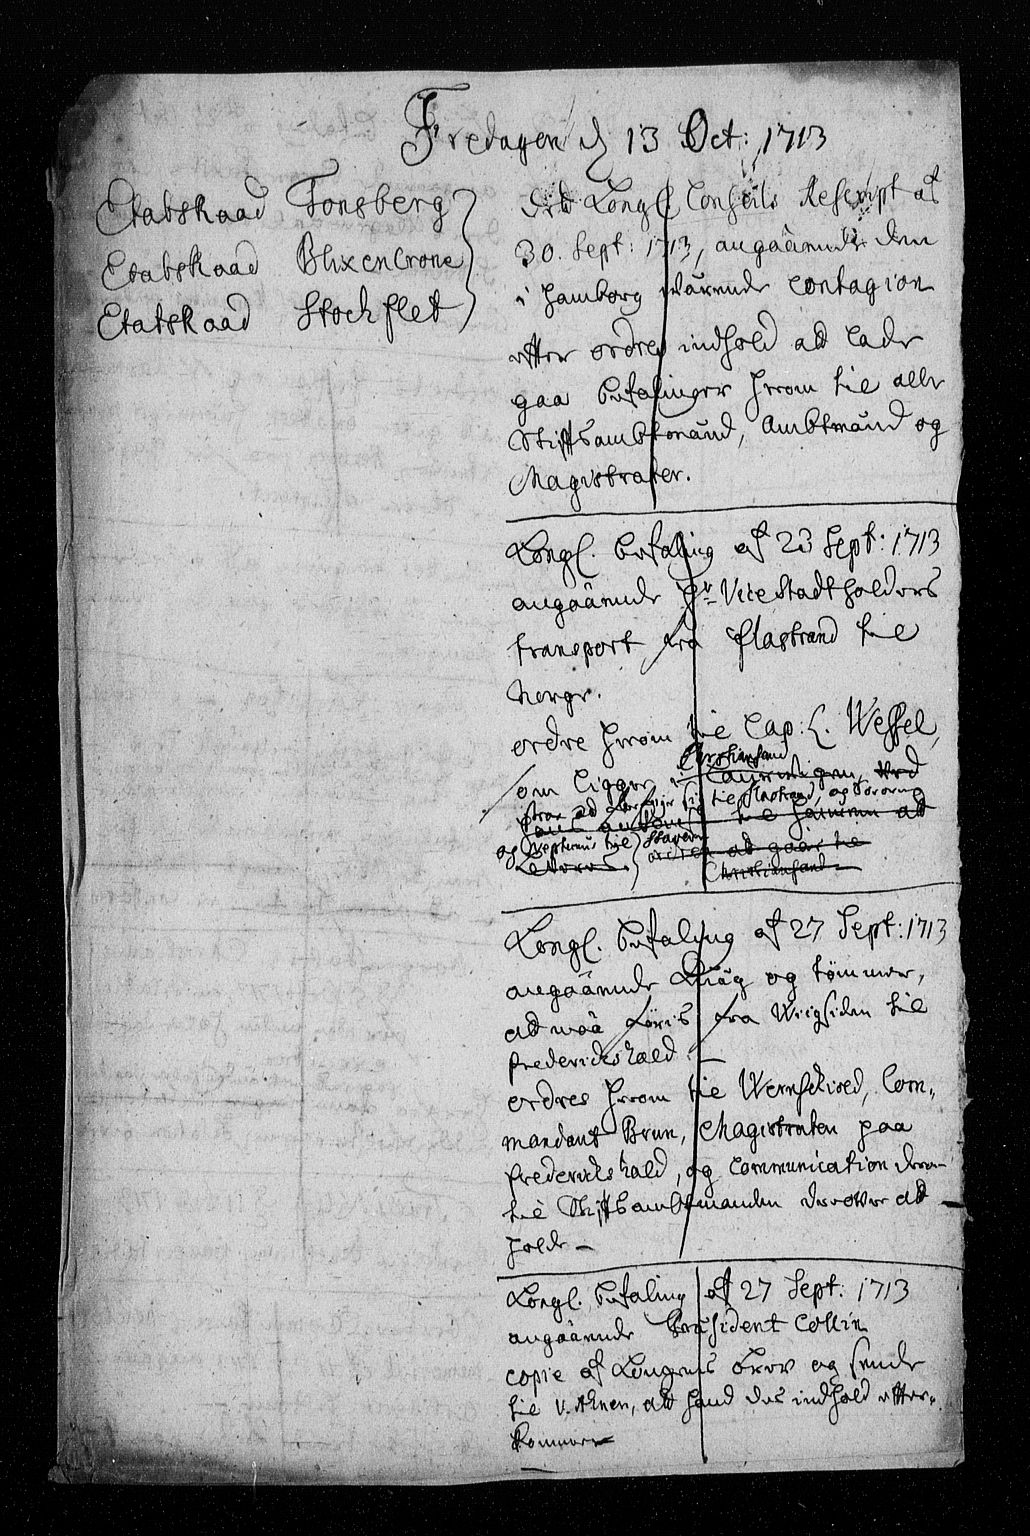 Fredagen d 13 Oct: 1713
Etatsraad Tonsberg
Etatsraad Blixencrone
Etatsraad Stockflet
Kongl Conseils Rescript af
30. Sept: 1713, angaaende den
i Hamborg wærende contagion
efter ordres indhold at lade
gaa befalinger herom til alle
Stiftsambtmænd, Ambtmænd og
Magistrater.
Kongl. befaling af 23 Sept: 1713
angaaende Hr Vice Stadtholders
transport fra Fladstrand til
Norge.
ordre herom til Cap: L. Wessel,
som ligger i Christiansand
og Neptunus til Stavern
Christiansand
Kongl. befaling af 27 Sept: 1713
angaaende Qvæg og tømmer,
at maa føris fra Wiigsiden til
Friderichshald.
ordres herom til Wernschiold, Com-
mandant Brun, Magistraten paa
Friderichshald, og communication
til Stiftsambtmanden derover at
holde
Kongl. befaling af 27 Sept: 1713
angaaende Præsident Collin
copie af Kongens brev og sende
til v. Ahnen, at hand des indhold efter-
kommer